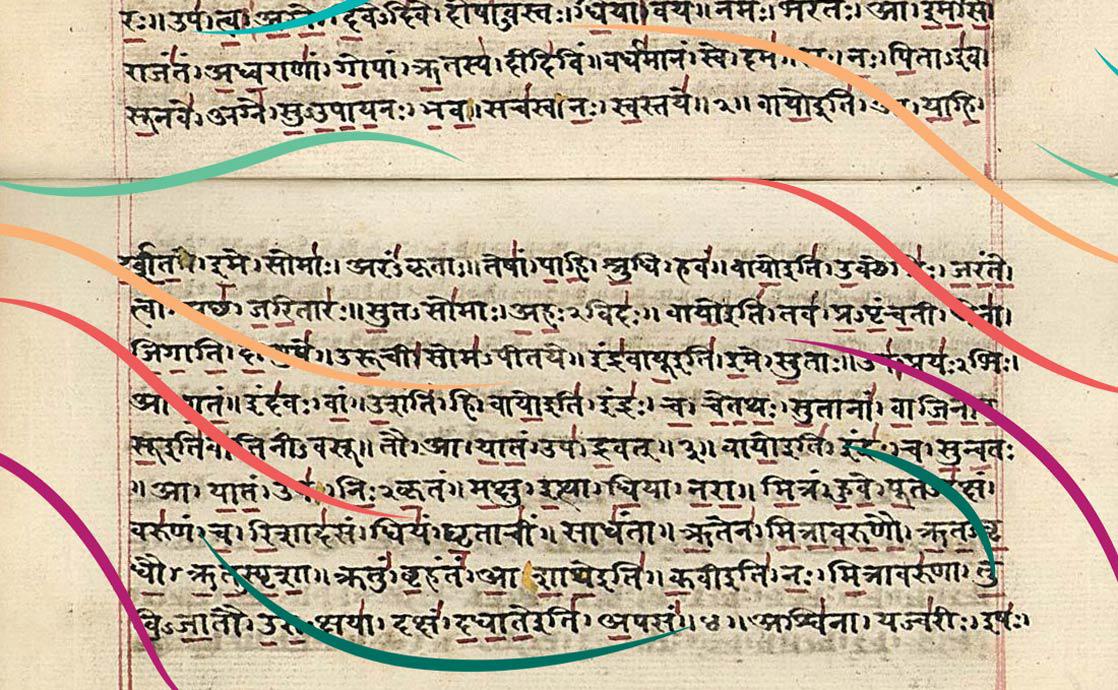 रः॥ उप। त्वा। अग्ने। दिवेऽदिवे। दोषाऽवस्तः। धिया। वयं॥ नमः। भरंतः। आ। इमसि
राजंतं। अध्वराणां। गोपां। ऋतस्य। दीदिविं॥ वर्धमानं। स्वे। दमे। नः। पिताऽइव।
सूनवे। अग्ने। सुऽउपायनः। भव॥ सचस्व। नः। स्वस्तये॥ २॥ वायो इति। आ। याहि।
इमे। सोमाः। अरंऽकृताः॥ तेषां। पाहि। श्रुधि। हवं॥ वायो इति। जरंते।
त्वां। अच्छ। जरितारः॥ सुतऽसोमाः। अहःऽविदः॥ वायो इति। तव। प्रऽपृंचती। धेना।
जिगाति। दाशुषे॥ उरूची। सोमऽपीतये॥ इंद्रवायू इति। इमे। सुताः॥ उप। प्रयःऽभिः।
आ। गतं॥ इंदवः। वां। उशंति। हि। वायो इति। इंद्रः। च। चेतथः। सुतानां। वाजिनीव
सू इति वाजिनीऽवसू॥ तौ। आ। यातं। उप। द्रवत्॥ ३॥ वायो इति। इंद्रः। च। सुन्वतः
। आ। यातं। उप। निःऽकृतं॥ मक्षु। इत्था। धिया। नरा॥ मित्रं। हुवे। पूतऽदक्षं।
वरुणं। च। रिशादसं। धियं। घृताचीं॥ साधंता॥ ऋतेन। मित्रावरुणौ। ऋतऽवृ
धौ। ऋतऽस्पृशा॥ क्रतुं। बृहंतं। आशाथे इति॥ कवी इति। नः। मित्रावरुणा। तु
विऽजातौ। उरुऽक्षया। दक्षं। दधाते इति। अपसं॥ ४॥ अश्विना। यज्वरीः। इषः।